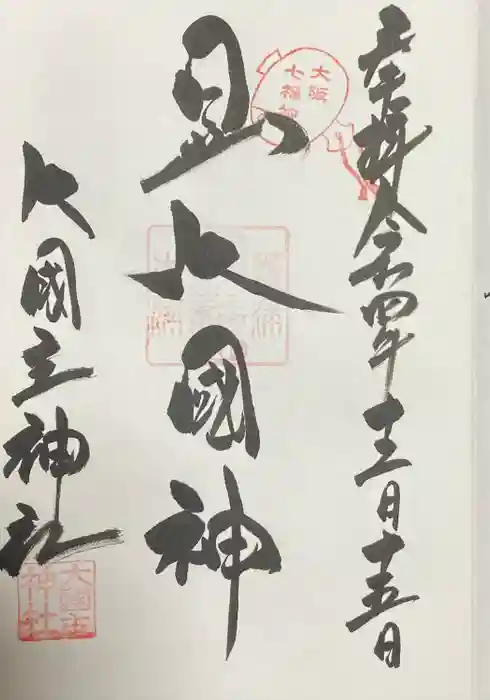 奉拝 令和四年 十二月十五日
大阪
七福神
日出大國神
大國主神社
大國主
神社